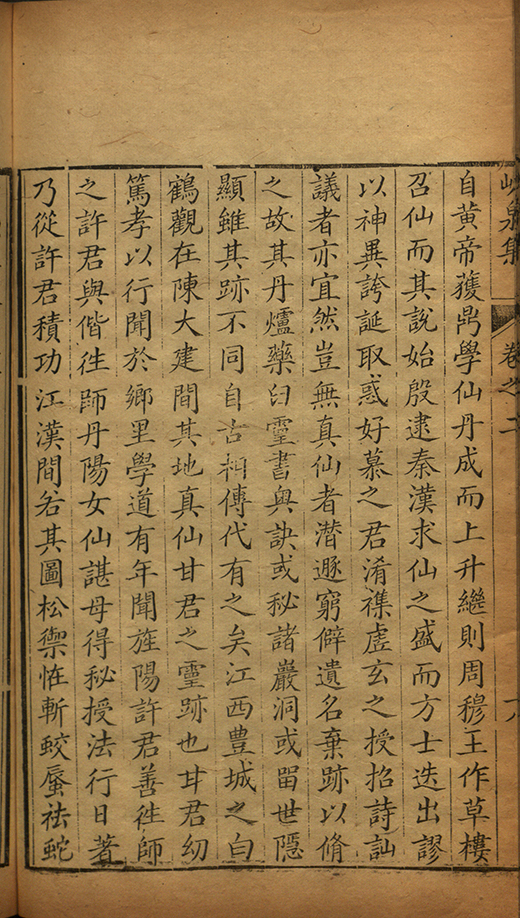 峴泉集
卷之二
十八
自黄帝獲鼎學仙丹成而上升繼則周穆王作草樓
召仙而其說始殷逮秦漢求仙之盛而方士迭出謬
以神異誇誕取惑好慕之君淆襍虛玄之授招詩訕
議者亦宜然豈無真仙者潜遯窮僻遺名棄跡以脩
之故其丹爐藥臼靈書奥訣或秘諸巖洞或畱世隠
顯雖其跡不同自古相傳代有之矣江西豊城之白
鶴觀在陳大建間其地真仙甘君之靈跡也甘君幼
篤孝以行聞於鄉里學道有年聞旌陽許君善徃師
之許君與偕徃師丹陽女仙諶母得秘授法行日著
乃從許君積功江漢間若其圖松禦恠斬蛟蜃祛蛇